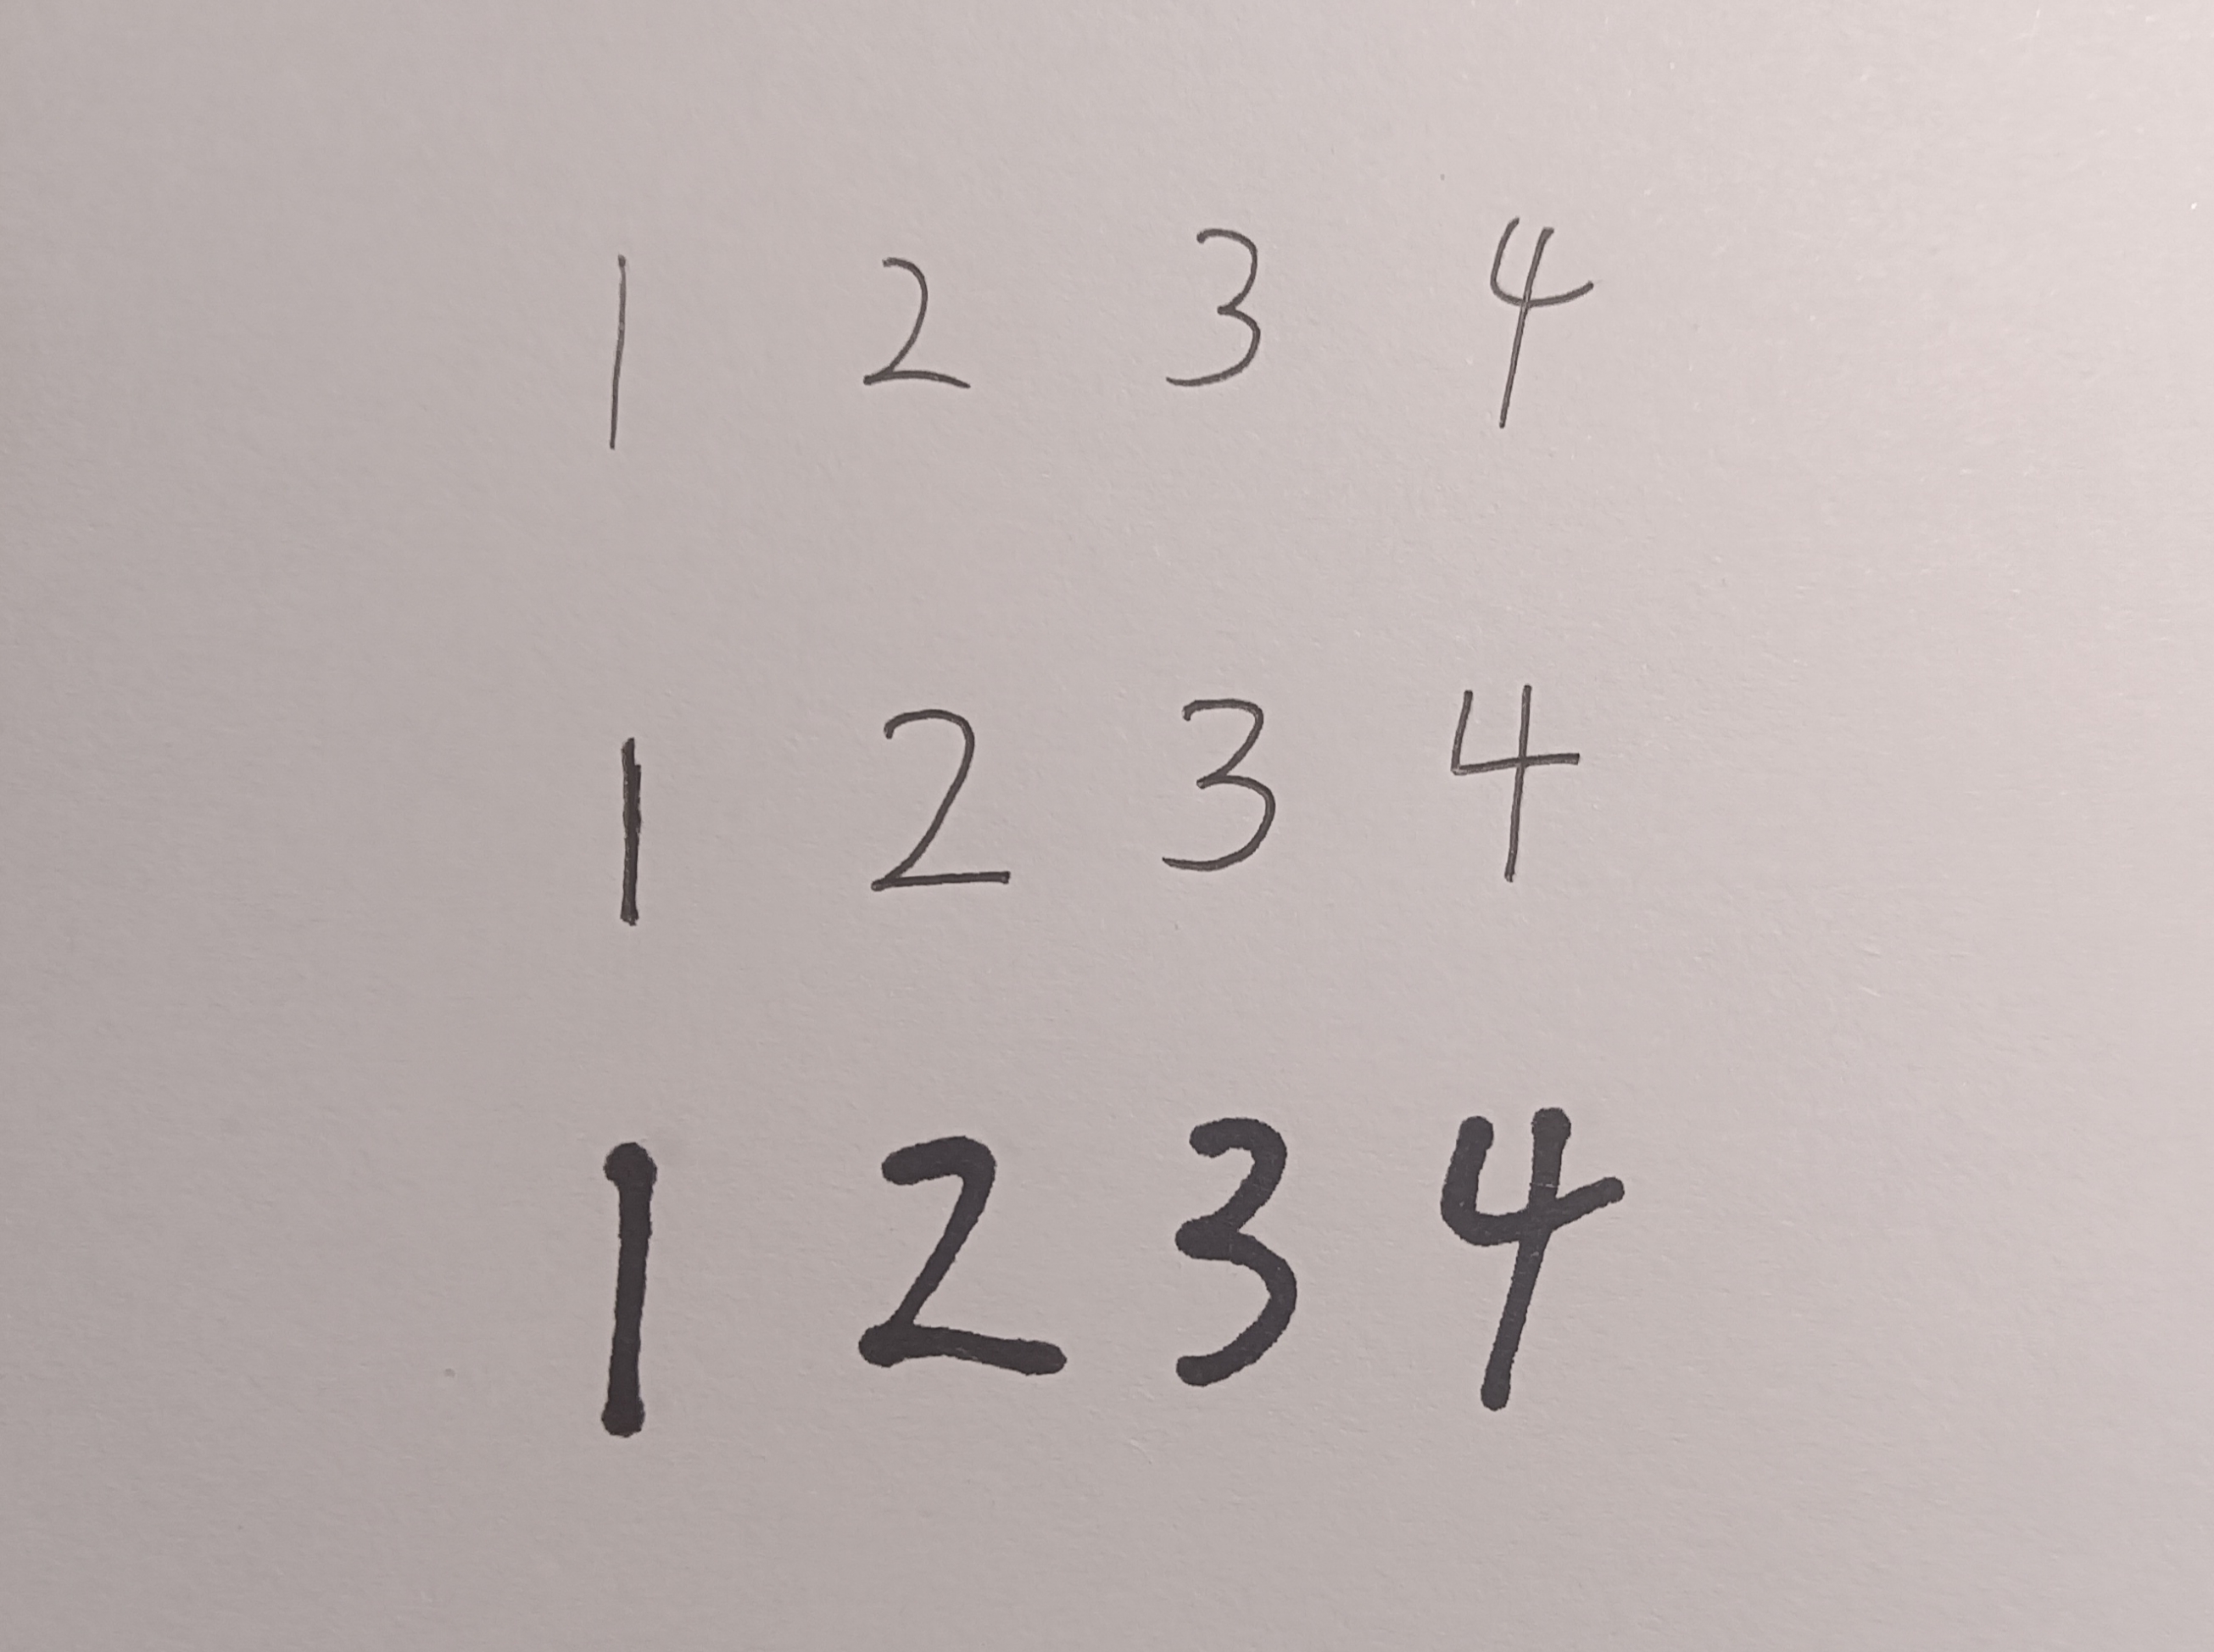 1 2 3 4
1 2 3 4
1 2 3 4